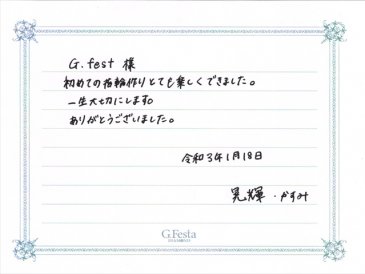 G.fest 様
初めての指輪作りとても楽しくできました。
一生大切にします。
ありがとうございました。
令和3年1月18日
晃輝・かすみ
G.Festa